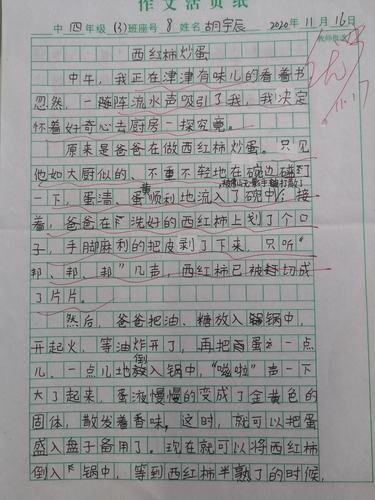 作文活页纸
中四年级(3)班座号8姓名胡宇辰 2020年11月16日
教师批改
优
11.1
西红柿炒蛋
中午，我正在津津有味儿的看着书
忽然，一阵阵流水声吸引了我，我决定
怀着好奇心去厨房一探究竟。
原来是爸爸在做西红柿炒蛋。只见
他如大厨似的、不重不轻地在碗边磕
一下，蛋清、蛋黄顺利地流入了碗中；接
着，爸爸在洗好的西红柿上划了个口
子，手脚麻利的把皮剥了下来，只听“
邦、邦、邦”几声，西红柿已被切成
了片片。
然后，爸爸把油、糖放入锅中，
开起火，等油炸开了，再把蛋一点
儿、一点儿地倒入锅中，“嗞啦”声一下
大了起来，蛋液慢慢的变成了金黄色的
固体，散发着香味。这时，就可以把蛋
盛入盘子备用了。现在就可以将西红柿
倒入锅中，等到西红柿半熟了的时候，